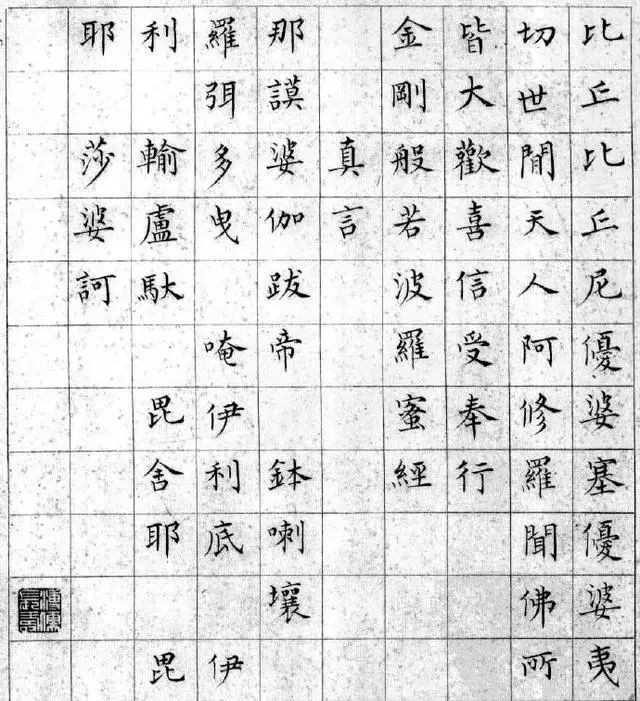 比丘比丘尼優婆塞優婆夷
切世閒天人阿修羅聞佛所
皆大歡喜信受奉行
金剛般若波羅蜜經
真言
那謨婆伽跋帝 鉢喇壤
羅弭多曳 唵伊利底 伊
利 輸盧馱 毘舍耶 毘
耶 莎婆訶